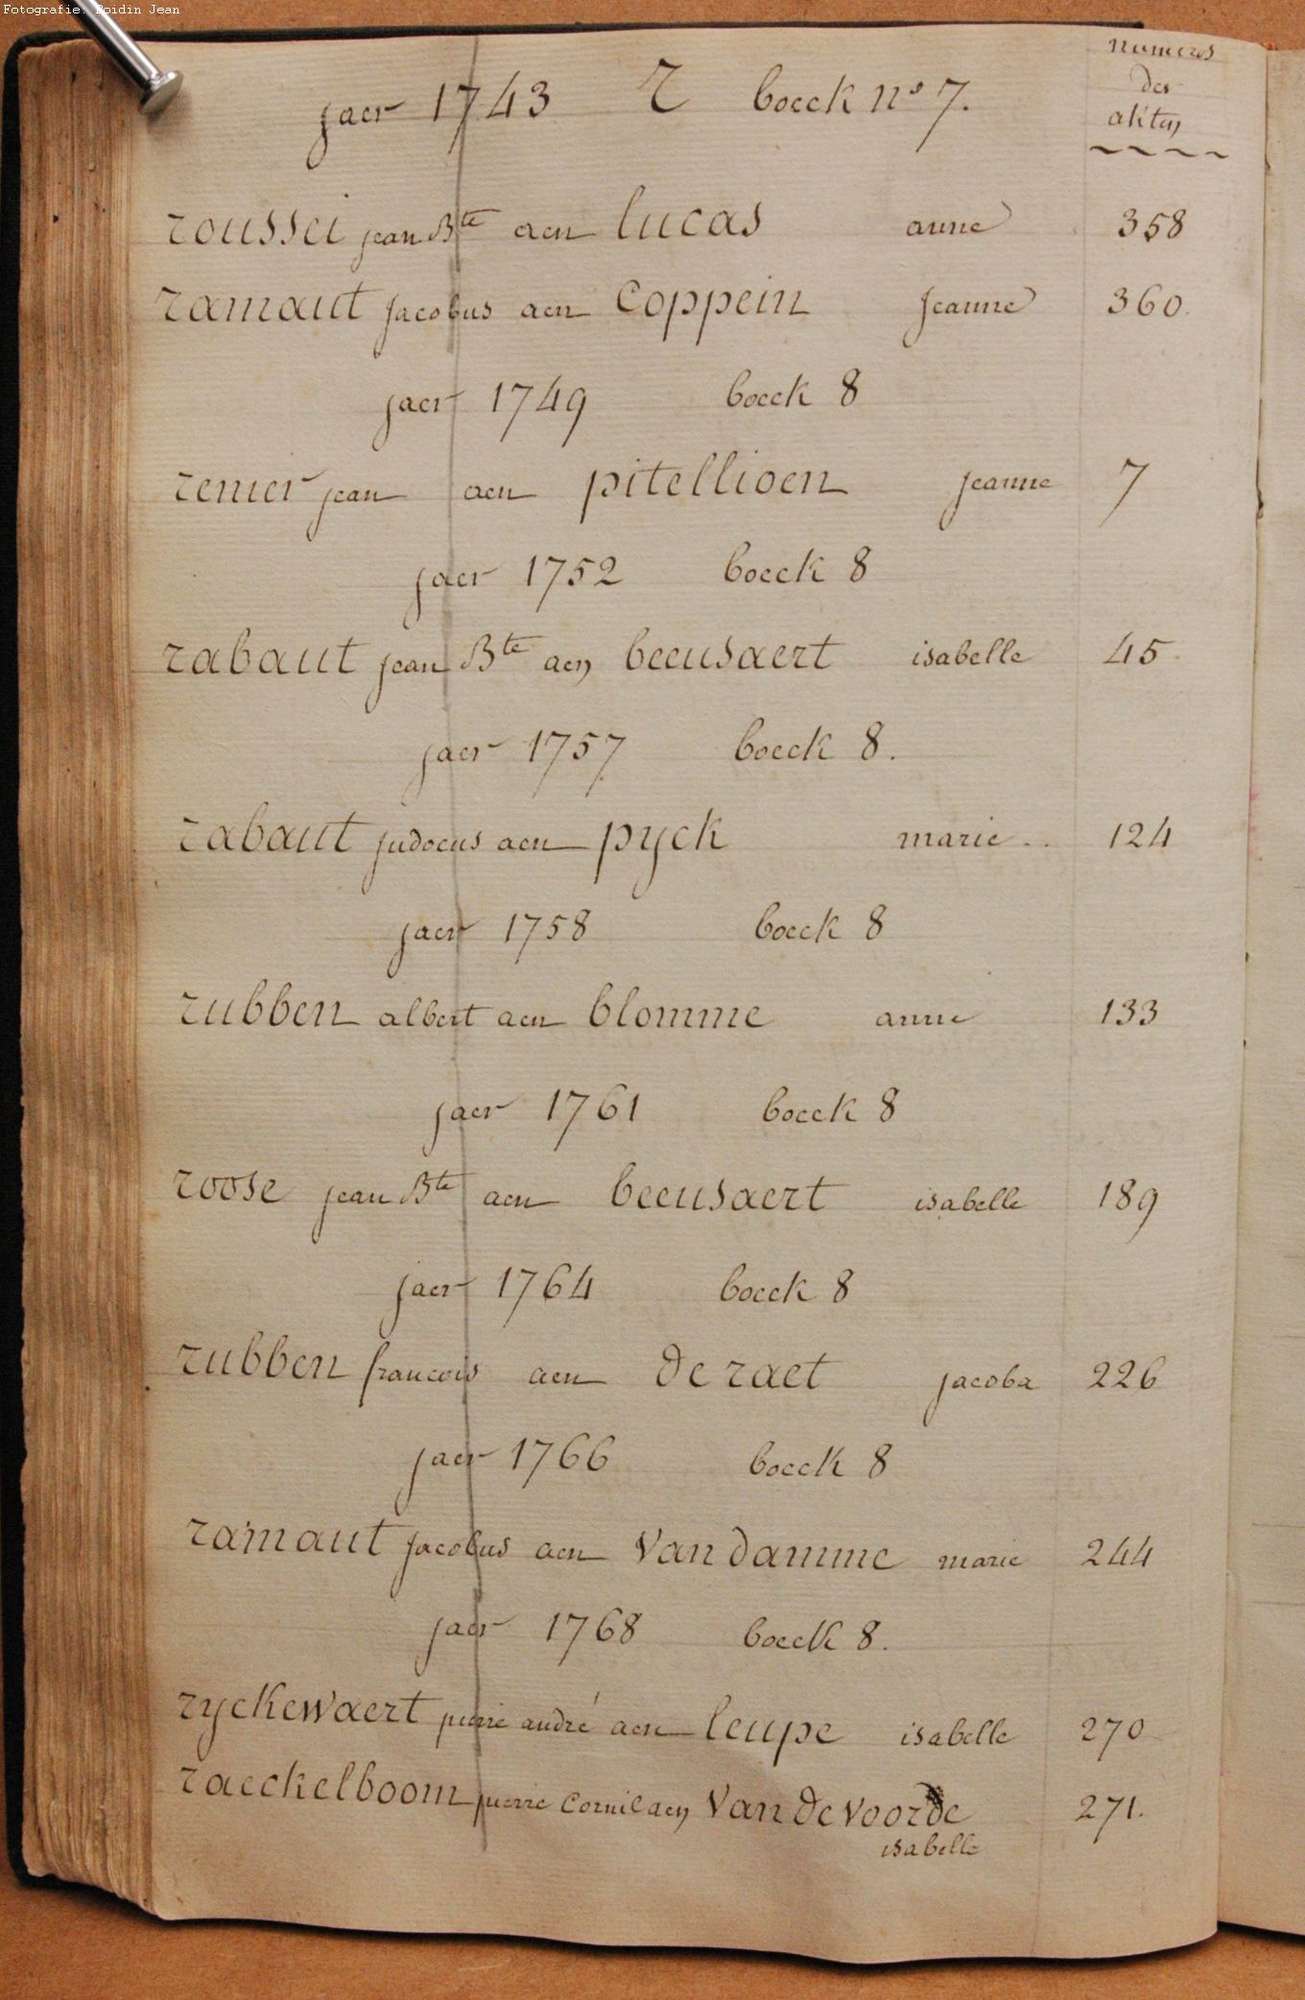 Fotografie: Foidin Jean
numeros
des
akten
jaer 1743 R boeck no 7.
roussei jean Bte aen lucas anne 358
ramaut jacobus aen coppein jeanne 360.
jaer 1749 boeck 8
renier jean aen pitellioen jeanne 7
jaer 1752 boeck 8
rabaut jean Bte aen beeusaert isabelle 45
jaer 1757 boeck 8.
rabaut judocus aen pyck marie .. 124
jaer 1758 boeck 8
rubben albert aen blomme anne 133
jaer 1761 boeck 8
roose jean Bte aen beeusaert isabelle 189
jaer 1764 boeck 8
rubben francois aen de raet jacoba 226
jaer 1766 boeck 8
ramaut jacobus aen van damme marie 244
jaer 1768 boeck 8.
ryckewaert pierre andré aen leupe isabelle 270
raeckelboom pierre Cornil aen van de voorde 271.
isabelle